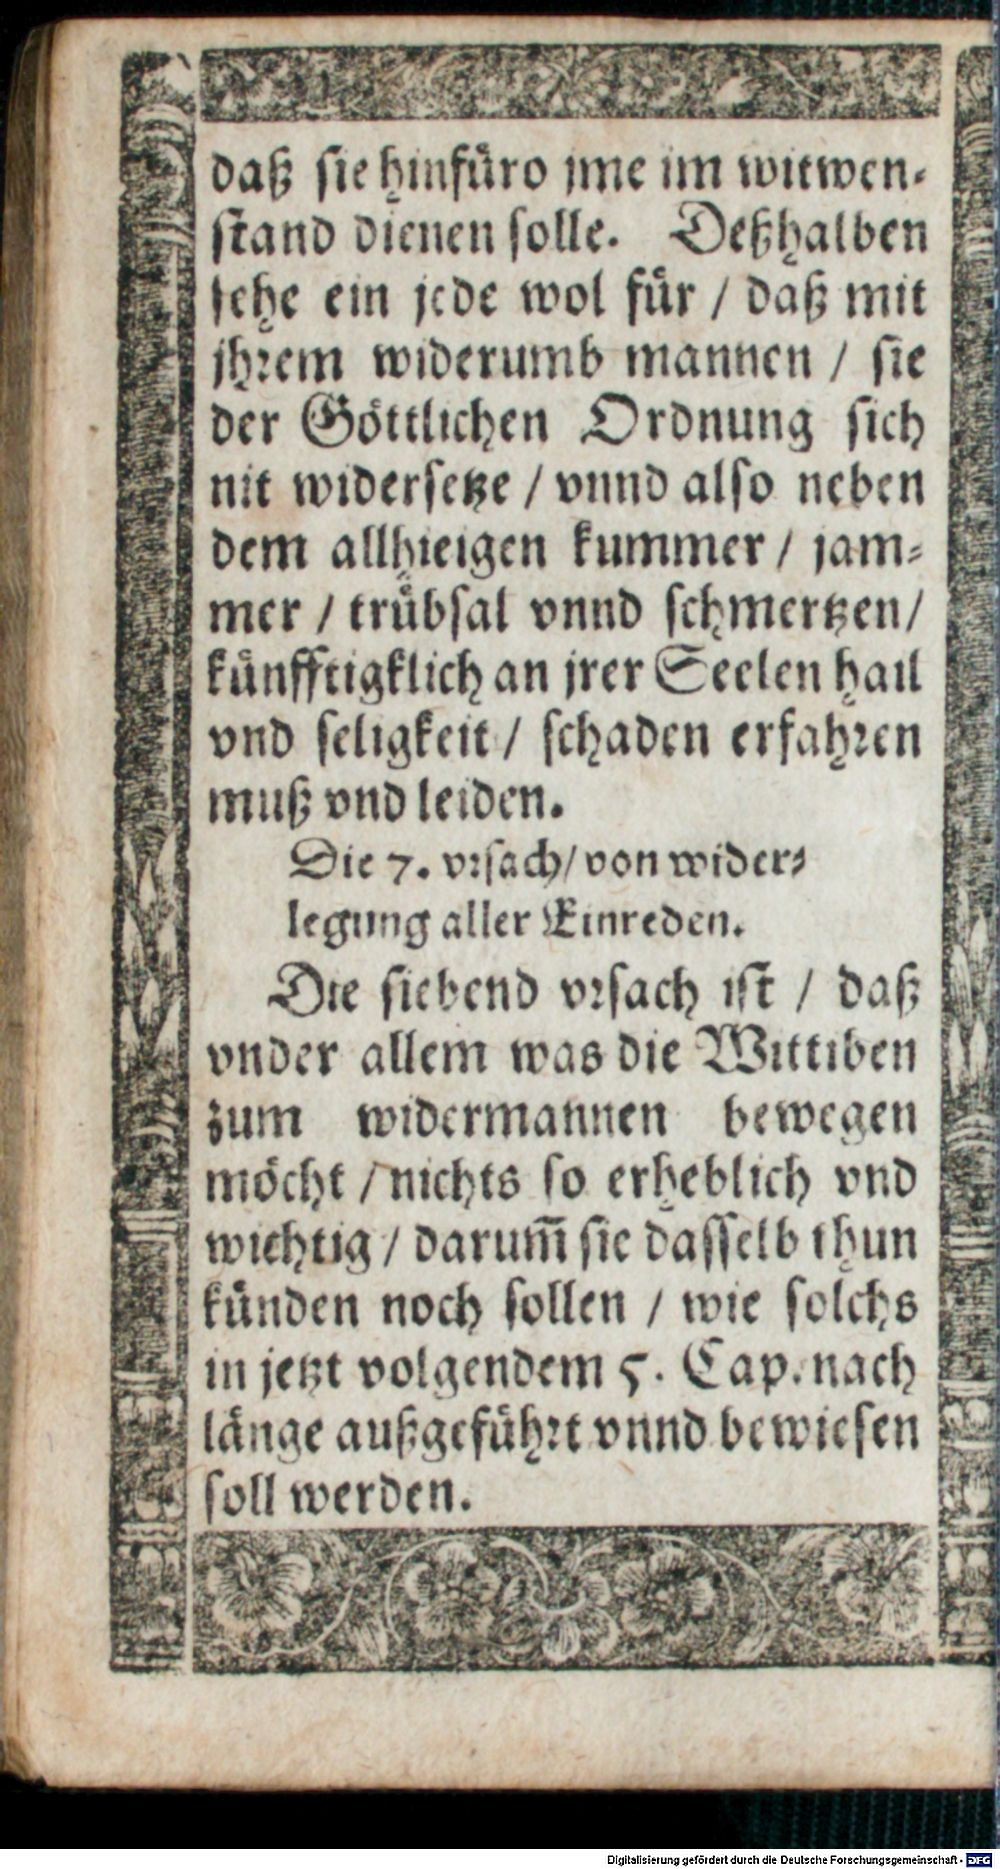 daß sie hinfüro jme im witwen-
stand dienen solle. Deßhalben
sehe ein jede wol für / daß mit
jhrem widerumb mannen / sie
der Göttlichen Ordnung sich
nit widersetze / vnnd also neben
dem allhieigen kummer / jam-
mer / trübsal vnnd schmertzen /
künfftigklich an jrer Seelen hail
vnd seligkeit / schaden erfahren
muß vnd leiden.
Die 7. vrsach / von wider-
legung aller Einreden.
Die siebend vrsach ist / daß
vnder allem was die Wittiben
zum widermannen bewegen
möcht / nichts so erheblich vnd
wichtig / darum̄ sie dasselb thun
künden noch sollen / wie solchs
in jetzt volgendem 5. Cap. nach
länge außgeführt vnnd bewiesen
soll werden.
Digitalisierung gefördert durch die Deutsche Forschungsgemeinschaft - DFG